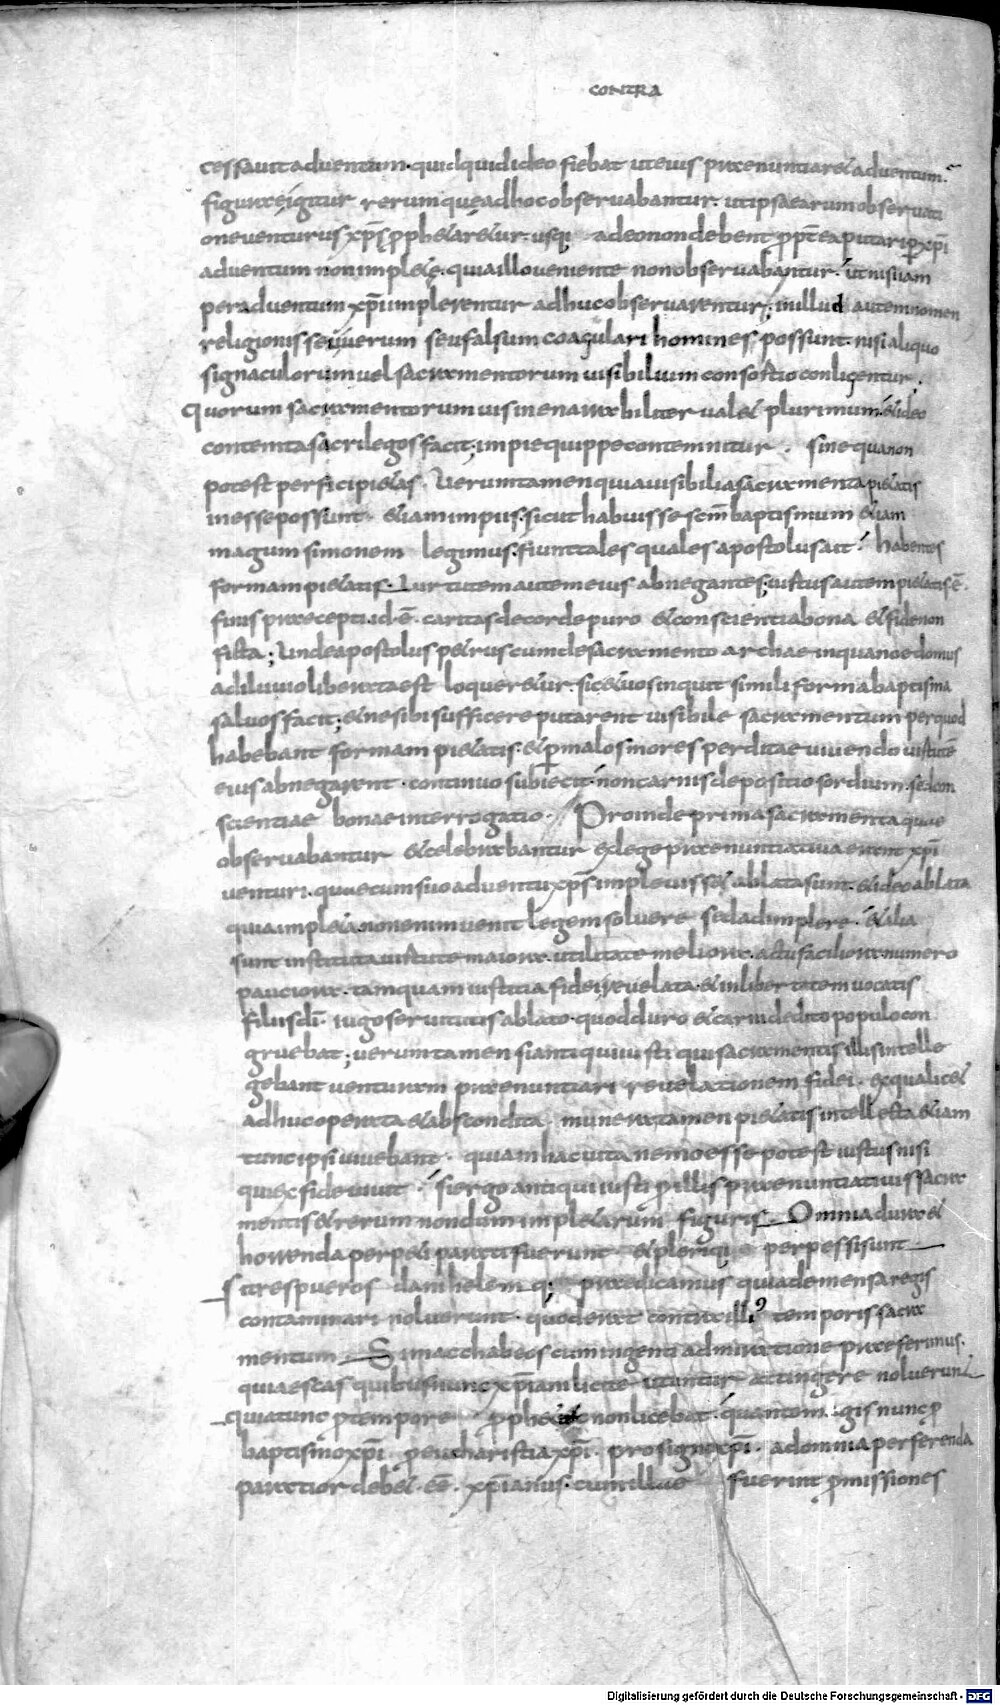 CONTRA
cessavit adventum. quidquid ideo fiebat ut eius praenuntiaret adventum.
figurae igitur rerumque ad hoc observabantur. ut ipsa earum observati
one venturus xp̄s p̄phetaretur. usq; adeo non debent p̄pt̄ ea putari p̲ xp̄i
adventum non implete. quia illo veniente non observabantur. ut nisi iam
per adventum xp̄i implerentur adhuc observarentur; in illud autem nomen
religionis seu verum seu falsum coagulari homines possunt. nisi aliquo
signaculorum vel sacramentorum visibilium consortio conligentur.
quorum sacramentorum vis inenarrabiliter valet plurimum. et ideo
contempta sacrilegos facit; impie quippe contemnitur. sine qua non
potest perfici pietas. Verumtamen quia visibilia sacramenta pietatis
inesse possunt. etiam impiis. sicut habuisse sc̄m baptismum etiam
magum simonem legimus. fiunt tales quales apostolus ait. habentes
formam pietatis. Virtutem autem eius abnegantes; virtus autem pietatis ē.
finis praecepti. id ē. caritas de corde puro et conscientia bona et fide non
ficta; Unde apostolus petrus cum de sacramento archae in qua noe domus
a diluvio liberata est loqueretur. sic et vos inquit simili forma baptisma
salvos facit; et ne sibi sufficere putarent visibile sacramentum per quod
habebant formam pietatis. et p̲ malos mores perditae vivendo virtutē
eius abnegarent. continuo subiecit. non carnis depositio sordium. sed con
scientiae bonae interrogatio. Proinde prima sacramenta quae
observabantur et celebrabantur ex lege praenuntiativa erant xp̄i
venturi. quae cum suo adventu xp̄s implevisset ablata sunt. et ideo ablata
quia impleta. non enim venit legem solvere sed adimplere. et alia
sunt instituta virtute maiora. utilitate meliora. actu faciliora numero
pauciora. tamquam iustitia fidei revelata. et in libertatem vocatis
filiis dī. iugo servitutis ablato. quod duro et carni dedito populo con
gruebat; verumtamen si antiqui iusti qui sacramentis illis intelle
gebant venturam praenuntiari revelationem fidei. ex qua licet
adhuc operta et abscondita. munera tamen pietatis intellecta etiam
tunc ipsi vivebant. quia in hac vita nemo esse potest iustus nisi
qui ex fide vivit. si ergo antiqui iusti p̄ illis praenuntiativis sacra
mentis et rerum nondum impletarum figuris. Omnia dura et
horrenda perpeti parati fuerunt. et pleriq; perpessi sunt
si tres pueros danihelemq; praedicamus quia de mensa regis
contaminari noluerunt. quod erat contra illi⁹ temporis sacra
mentum Si macchabeos cum ingenti admiratione praeferimus.
quia escas quibus nunc xp̄iani licite utuntur attingere noluerunt
quia tunc p̄ tempore p̄phetico non licebat. quanto magis nunc p̄
baptismo xp̄i. p̄ eucharistia xp̄i. pro signo xp̄i. ad omnia perferenda
paratior debet. eē. xp̄ianus. cum illae fuerint p̄missiones